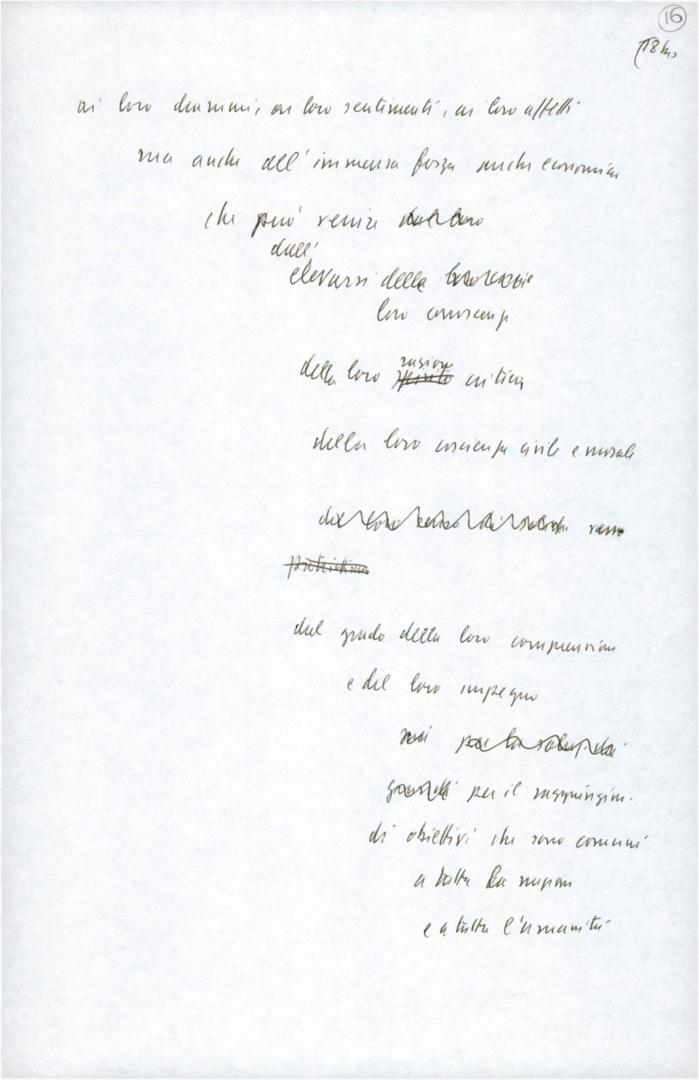 16
ai loro drammi, ai loro sentimenti, ai loro affetti
ma anche all'immensa forza anche economica
che può venire dal loro
dall'
elevarsi della
loro conoscenza
della loro ragione critica
della loro coscienza civile e morale
dal grado della loro comprensione
e del loro impegno
per il raggiungim.
di obiettivi che sono comuni
a tutta la nazione
e a tutta l'umanità